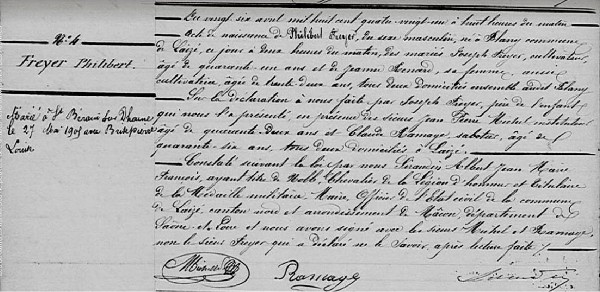 N°
Freyer Philibert.
Marié à St
le 27 Mai 1905 avec
Louise
Du vingt six avril mil huit cent quatre-vingt-un à huit heures du matin
Acte de naissance de Philibert Freyer, du sexe masculin, né à Blany commune
de Laizé, ce jour à deux heures du matin, des mariés Joseph Freyer, cultivateur,
âgé de quarante un ans et de Jeanne Renard, sa femme, aussi
cultivatrice, âgée de trente deux ans, tous deux domiciliés ensemble audit Blany
Sur la déclaration à nous faite par Joseph Freyer, père de l'enfant
qui nous l'a présenté, en présence des sieurs Jean Michel instituteur
âgé de quarante-deux ans et Claude Ramage sabotier, âgé de
quarante-six ans, tous deux domiciliés à Laizé.
Constaté suivant la loi par nous Albert Jean Marie
François, ayant titre de Noble, Chevalier de la Légion d'honneur et titulaire
de la Médaille militaire, Maire, Officier de l'Etat civil de la commune
de Laizé, canton nord et arrondissement de Mâcon, département de
Saône-et-Loire et nous avons signé avec les sieurs Michel et Ramage,
non le sieur Freyer qui a déclaré ne le savoir, après lecture faite.
Michel
Ramage